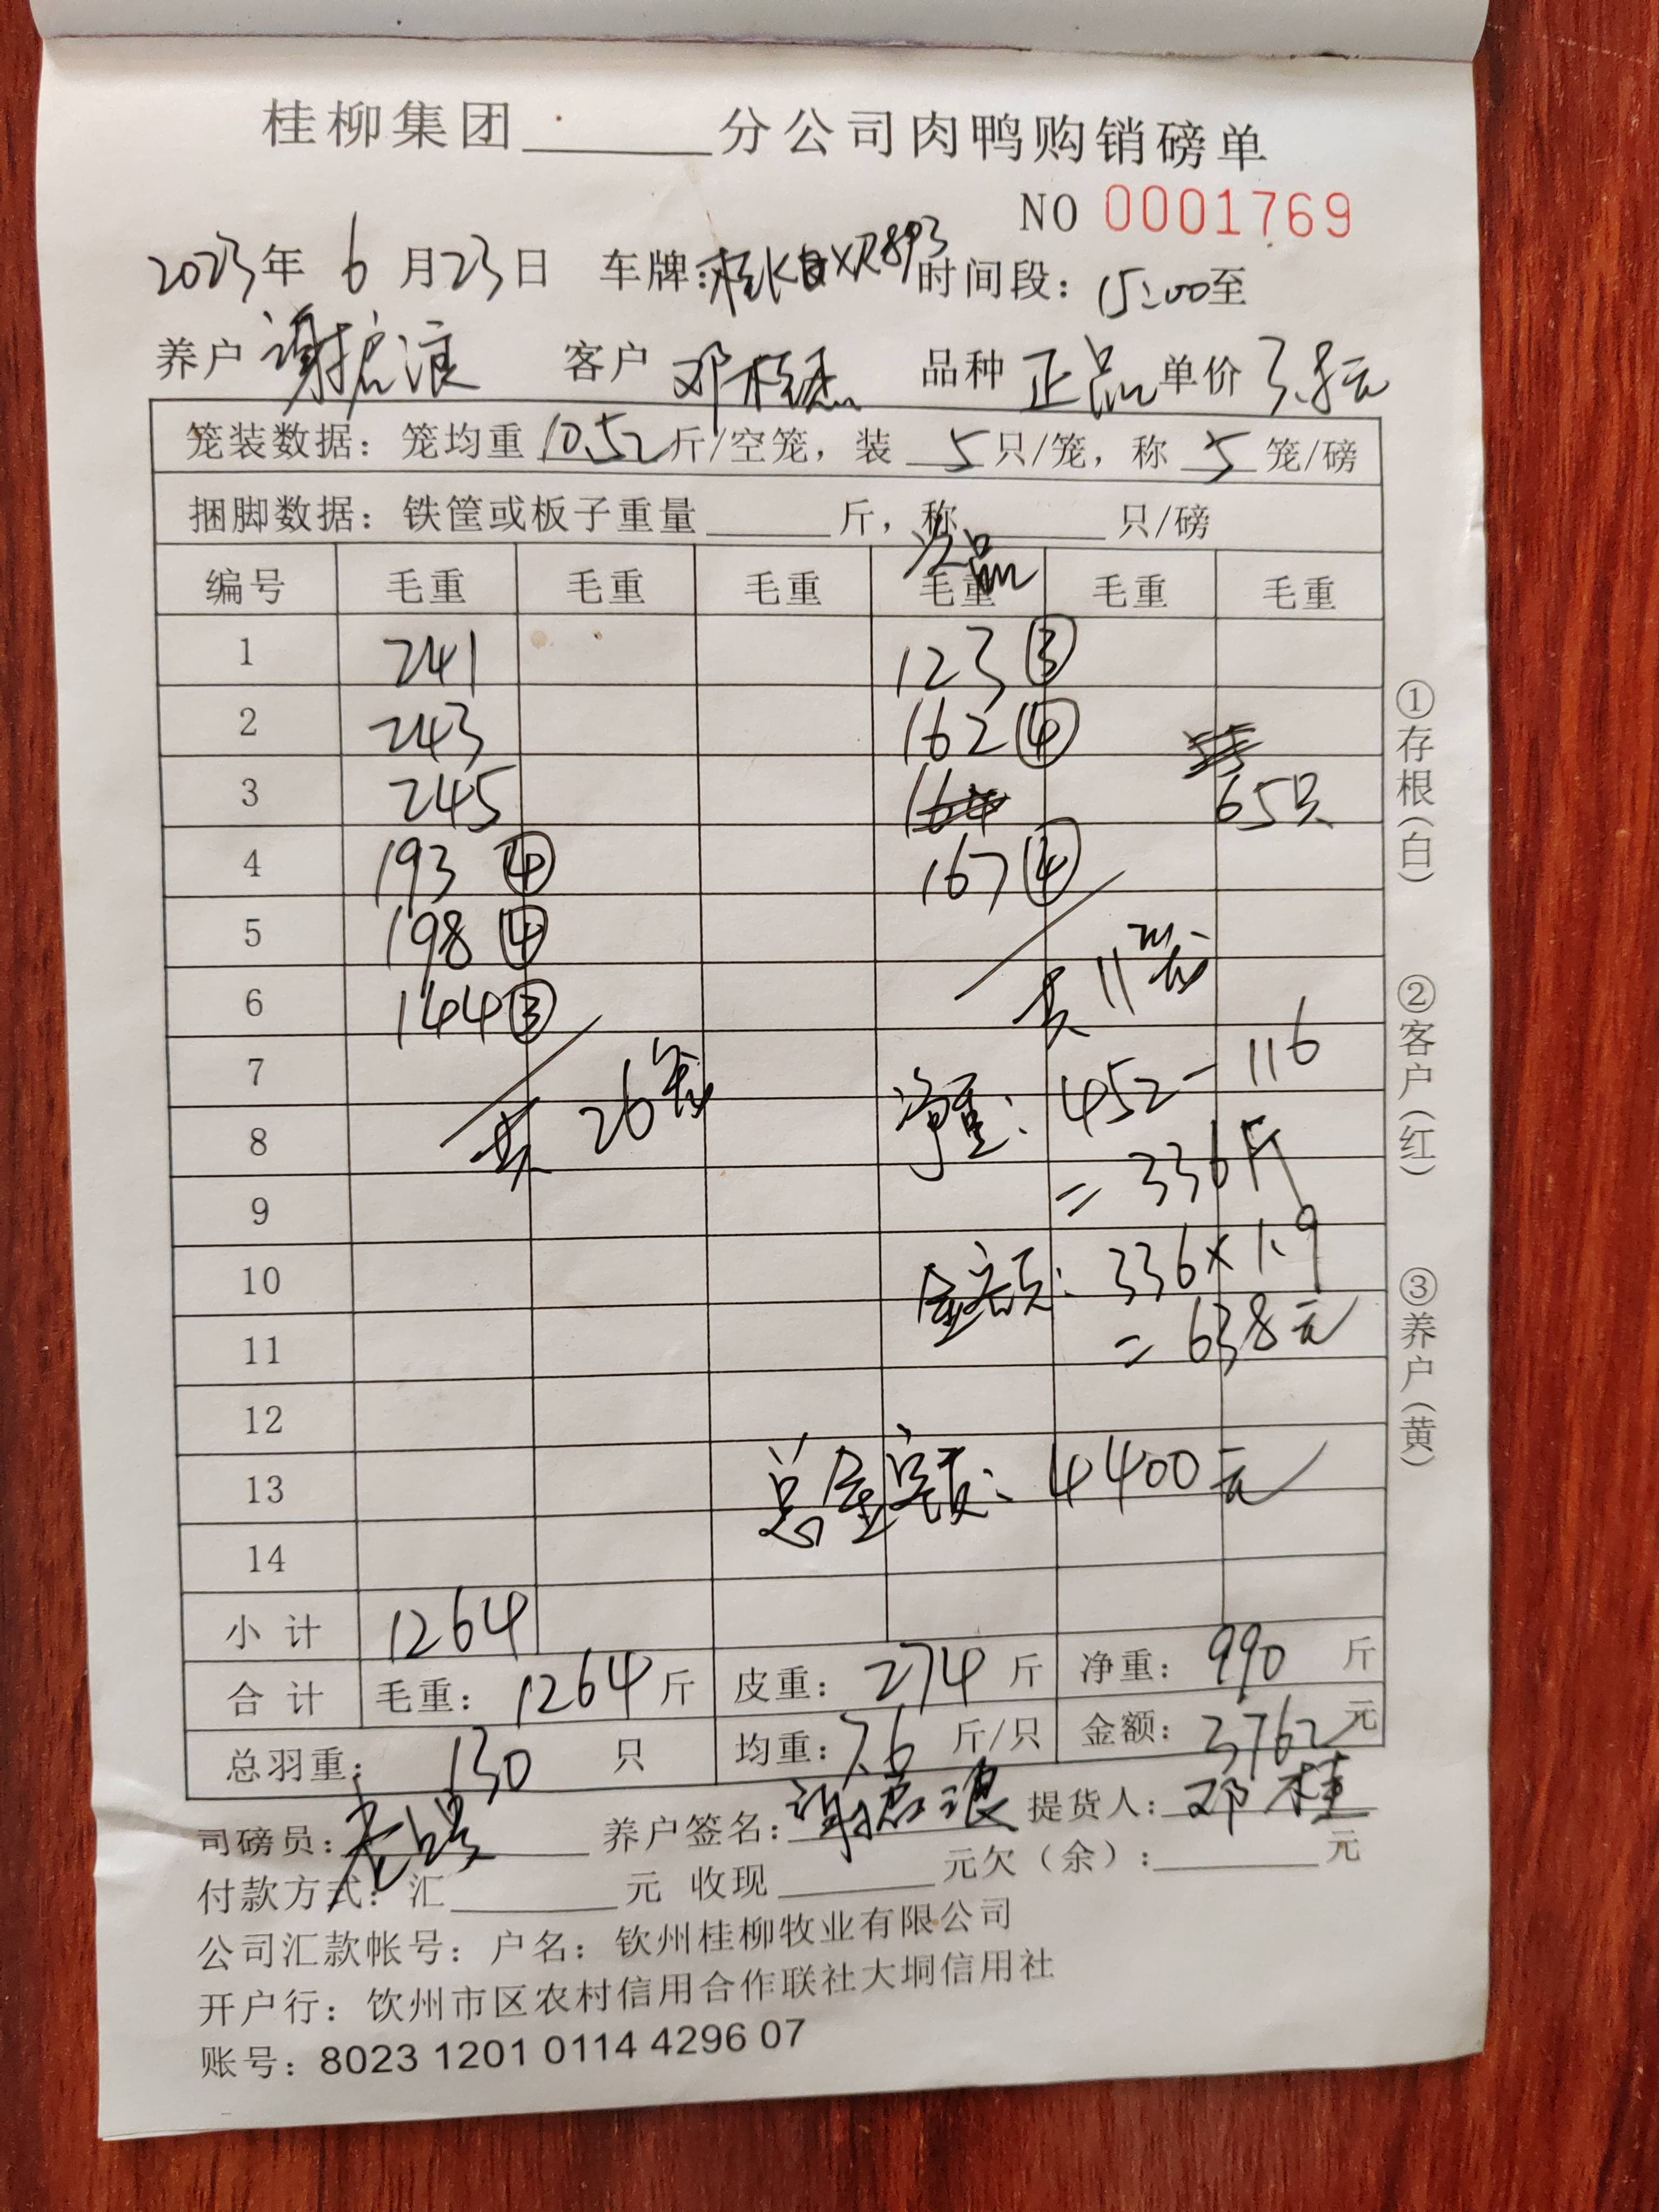 桂柳集团______分公司肉鸭购销磅单
NO 0001769
2023年 6 月23日 车牌: 时间段: 15:00至
养户 客户 邓桂 品种 正品 单价 3.8元
笼装数据: 笼均重 10.52斤/空笼, 装 5只/笼, 称 5 笼/磅
捆脚数据: 铁筐或板子重量______斤, 称______只/磅
次品
编号 毛重 毛重 毛重 毛重 毛重 毛重
1 241 123③
2 243 162④
3 245 164 65只
4 193④ 167④
5 198④ 共11笼
6 144③
7 共26笼 净重: 452-116
8 =336斤
9
10 金额: 336×1.9
11 =638元
12
13 总金额: 4400元
14
小计 1264
合计 毛重: 1264斤 皮重: 274斤 净重: 990斤
总羽重: 130只 均重: 7.6斤/只 金额: 3762元
司磅员: 养户签名: 提货人: 邓桂
付款方式: 汇______元 收现______元欠(余):______元
公司汇款帐号: 户名: 钦州桂柳牧业有限公司
开户行: 饮州市区农村信用合作联社大垌信用社
账号: 8023 1201 0114 4296 07
①存根(白) ②客户(红) ③养户(黄)